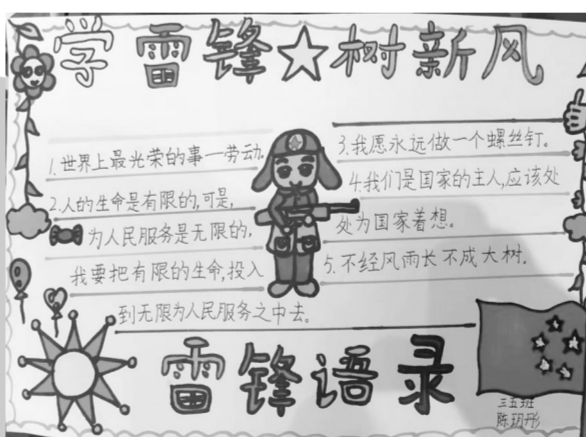 学雷锋☆树新风
1.世界上最光荣的事一劳动.
2.人的生命是有限的,可是,
为人民服务是无限的,
我要把有限的生命,投入
到无限为人民服务之中去。
3.我愿永远做一个螺丝钉。
4.我们是国家的主人,应该处
处为国家着想。
5.不经风雨长不成大树.
雷锋语录
三五班
陈玥彤